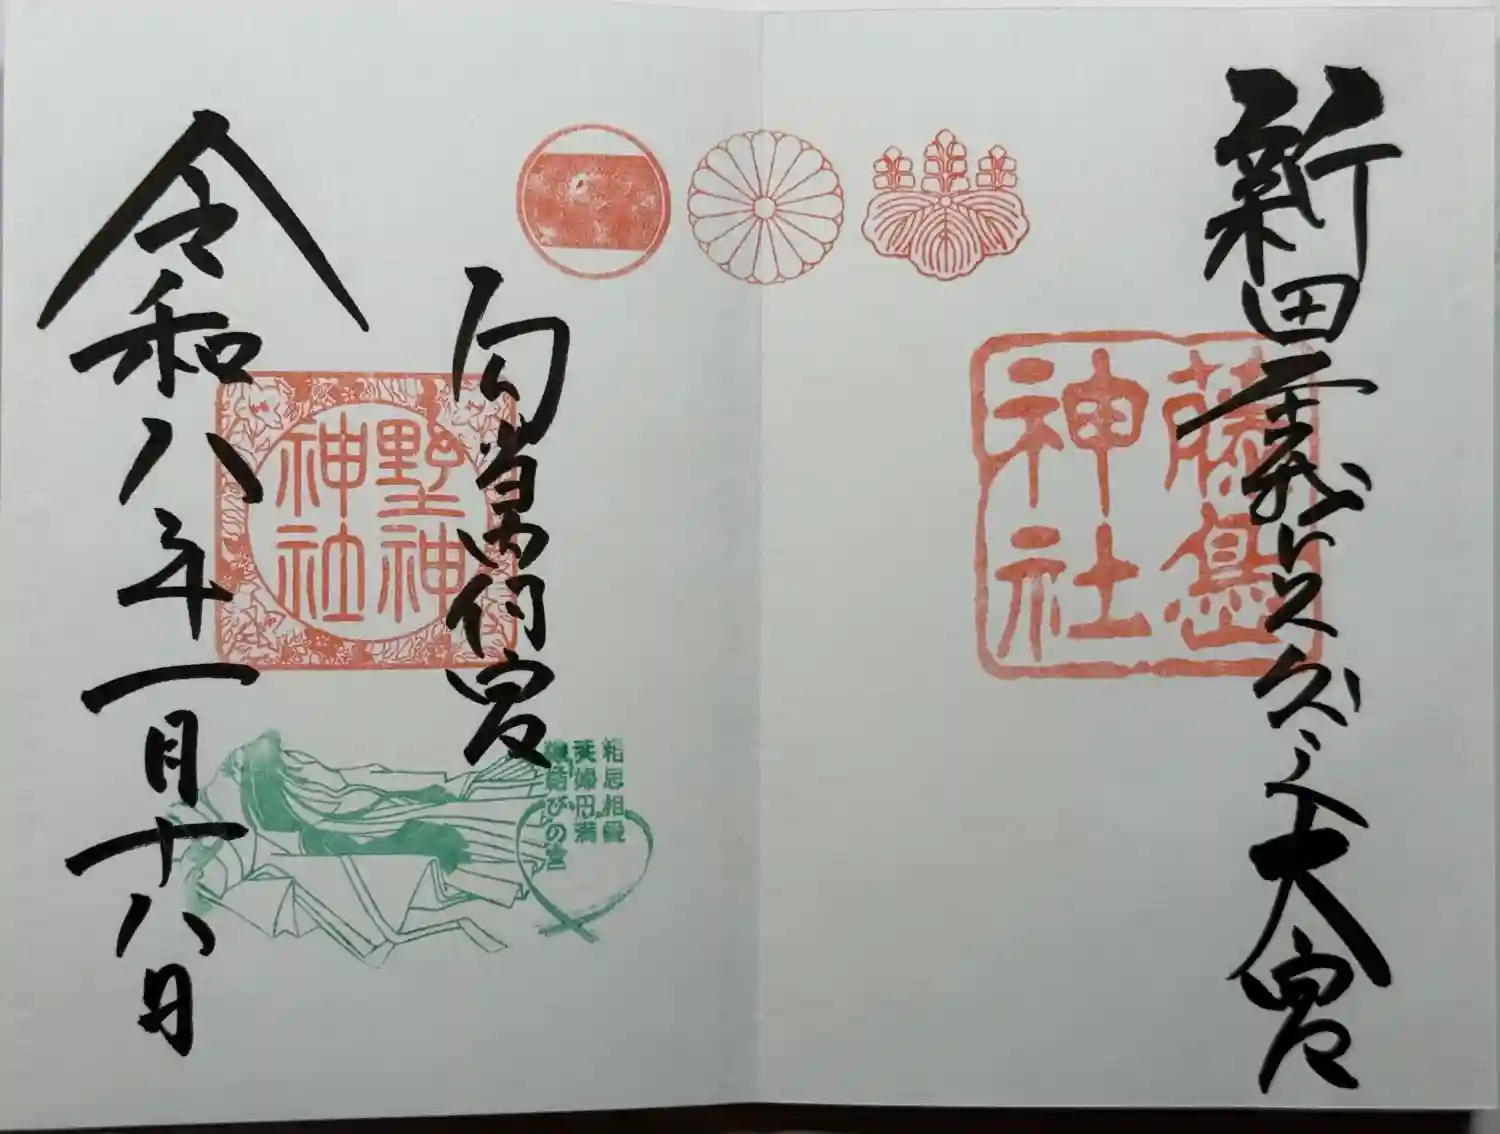 新田義貞公之大宮
藤島
神社
勾當内侍宮
野神
神社
相思相愛
夫婦円満
縁結びの宮
令和八年一月十八日